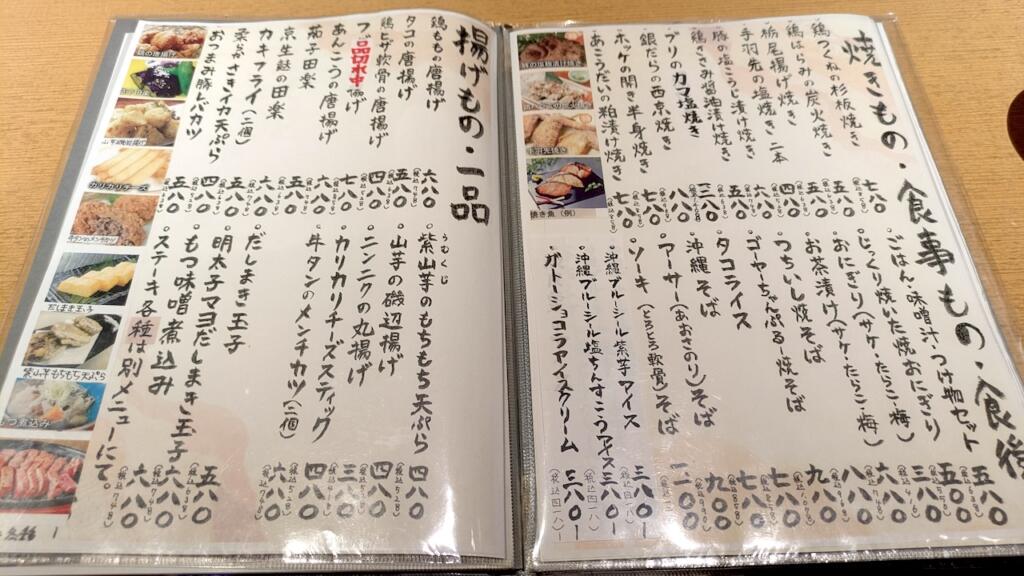 焼きもの・食事もの・食後
鶏つくねの杉板焼き 七八〇
鶏はらみの炭火焼き 五八〇
栃尾揚げ焼き 五八〇
手羽先の塩焼き 二本 四八〇
豚の塩こうじ漬け焼き 六八〇
鶏ささみ醤油漬け焼き 五八〇
ブリのカマ塩焼き 三八〇
銀だらの西京焼き 八八〇
ホッケの開き半身焼き 七八〇
あこうだいの粕漬け焼き 七八〇
ごはん・味噌汁・つけ物セット 五八〇
じっくり焼いた焼おにぎり 五〇〇
おにぎり(サケ・たらこ・梅) 三八〇
お茶漬け(サケ・たらこ・梅) 六八〇
つちいし焼そば 八八〇
ゴーヤーちゃんぷるー焼そば 九八〇
タコライス 八八〇
沖縄そば 七八〇
アーサー(あおさのり)そば 九〇〇
ソーキ(とろとろ軟骨)そば
沖縄ブルーシール紫芋アイス 三八〇
沖縄ブルーシール塩ちんすこうアイス 三八〇
ガトーショコラアイスクリーム 三八〇
豚の塩麹漬け焼き
手羽先焼き
焼き魚(例)
揚げもの・一品
鶏ももの唐揚げ 六八〇
タコの唐揚げ 五八〇
鶏ヤゲン軟骨の唐揚げ 四八〇
フグ品切れ中揚げ 七八〇
あんこうの唐揚げ 七八〇
茄子田楽 六八〇
京生麩の田楽 六八〇
カキフライ(二個) 五八〇
柔らかげそイカ天ぷら 四八〇
おつまみ豚とんカツ 五八〇
うむくじ
紫山芋のもちもち天ぷら 四八〇
山芋の磯辺揚げ 四八〇
ニンニクの丸揚げ 三八〇
カリカリチーズスティック 四八〇
牛タンのメンチカツ(二個) 四八〇
だしまき玉子 五八〇
明太子マヨだしまき玉子 六八〇
もつ味噌煮込み 六八〇
ステーキ各種は別メニューにて。
鶏の唐揚げ
山芋の磯辺揚げ
カリカリチーズ
牛タンのメンチカツ
だしまき玉子
紫山芋もちもち天ぷら
もつ煮込み